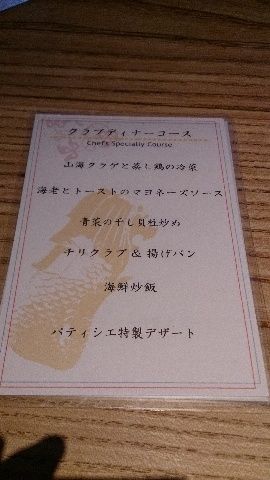 クラブディナーコース
Chef's Specialty Course
山海クラゲと蒸し鶏の冷菜
海老とトーストのマヨネーズソース
青菜の干し貝柱炒め
チリクラブ & 揚げパン
海鮮炒飯
パティシエ特製デザート